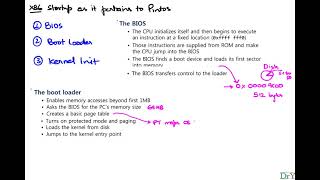 x86 startup as it pertains to Pintos
① Bios
② Boot Loader
③ Kernel Init
The BIOS
• The CPU initializes itself and then begins to execute an instruction at a fixed location (0xffff fff0)
• Those instructions are supplied from ROM and make the CPU jump into the BIOS.
• The BIOS finds a boot device and loads its first sector into memory
• The BIOS transfers control to the loader
Disk
0x00007C00
512 bytes
The boot loader
• Enables memory accesses beyond first 1MB
• Asks the BIOS for the PC's memory size 64MB
• Creates a basic page table
• Turns on protected mode and paging
• Loads the kernel from disk
• Jumps to the kernel entry point
PT maps